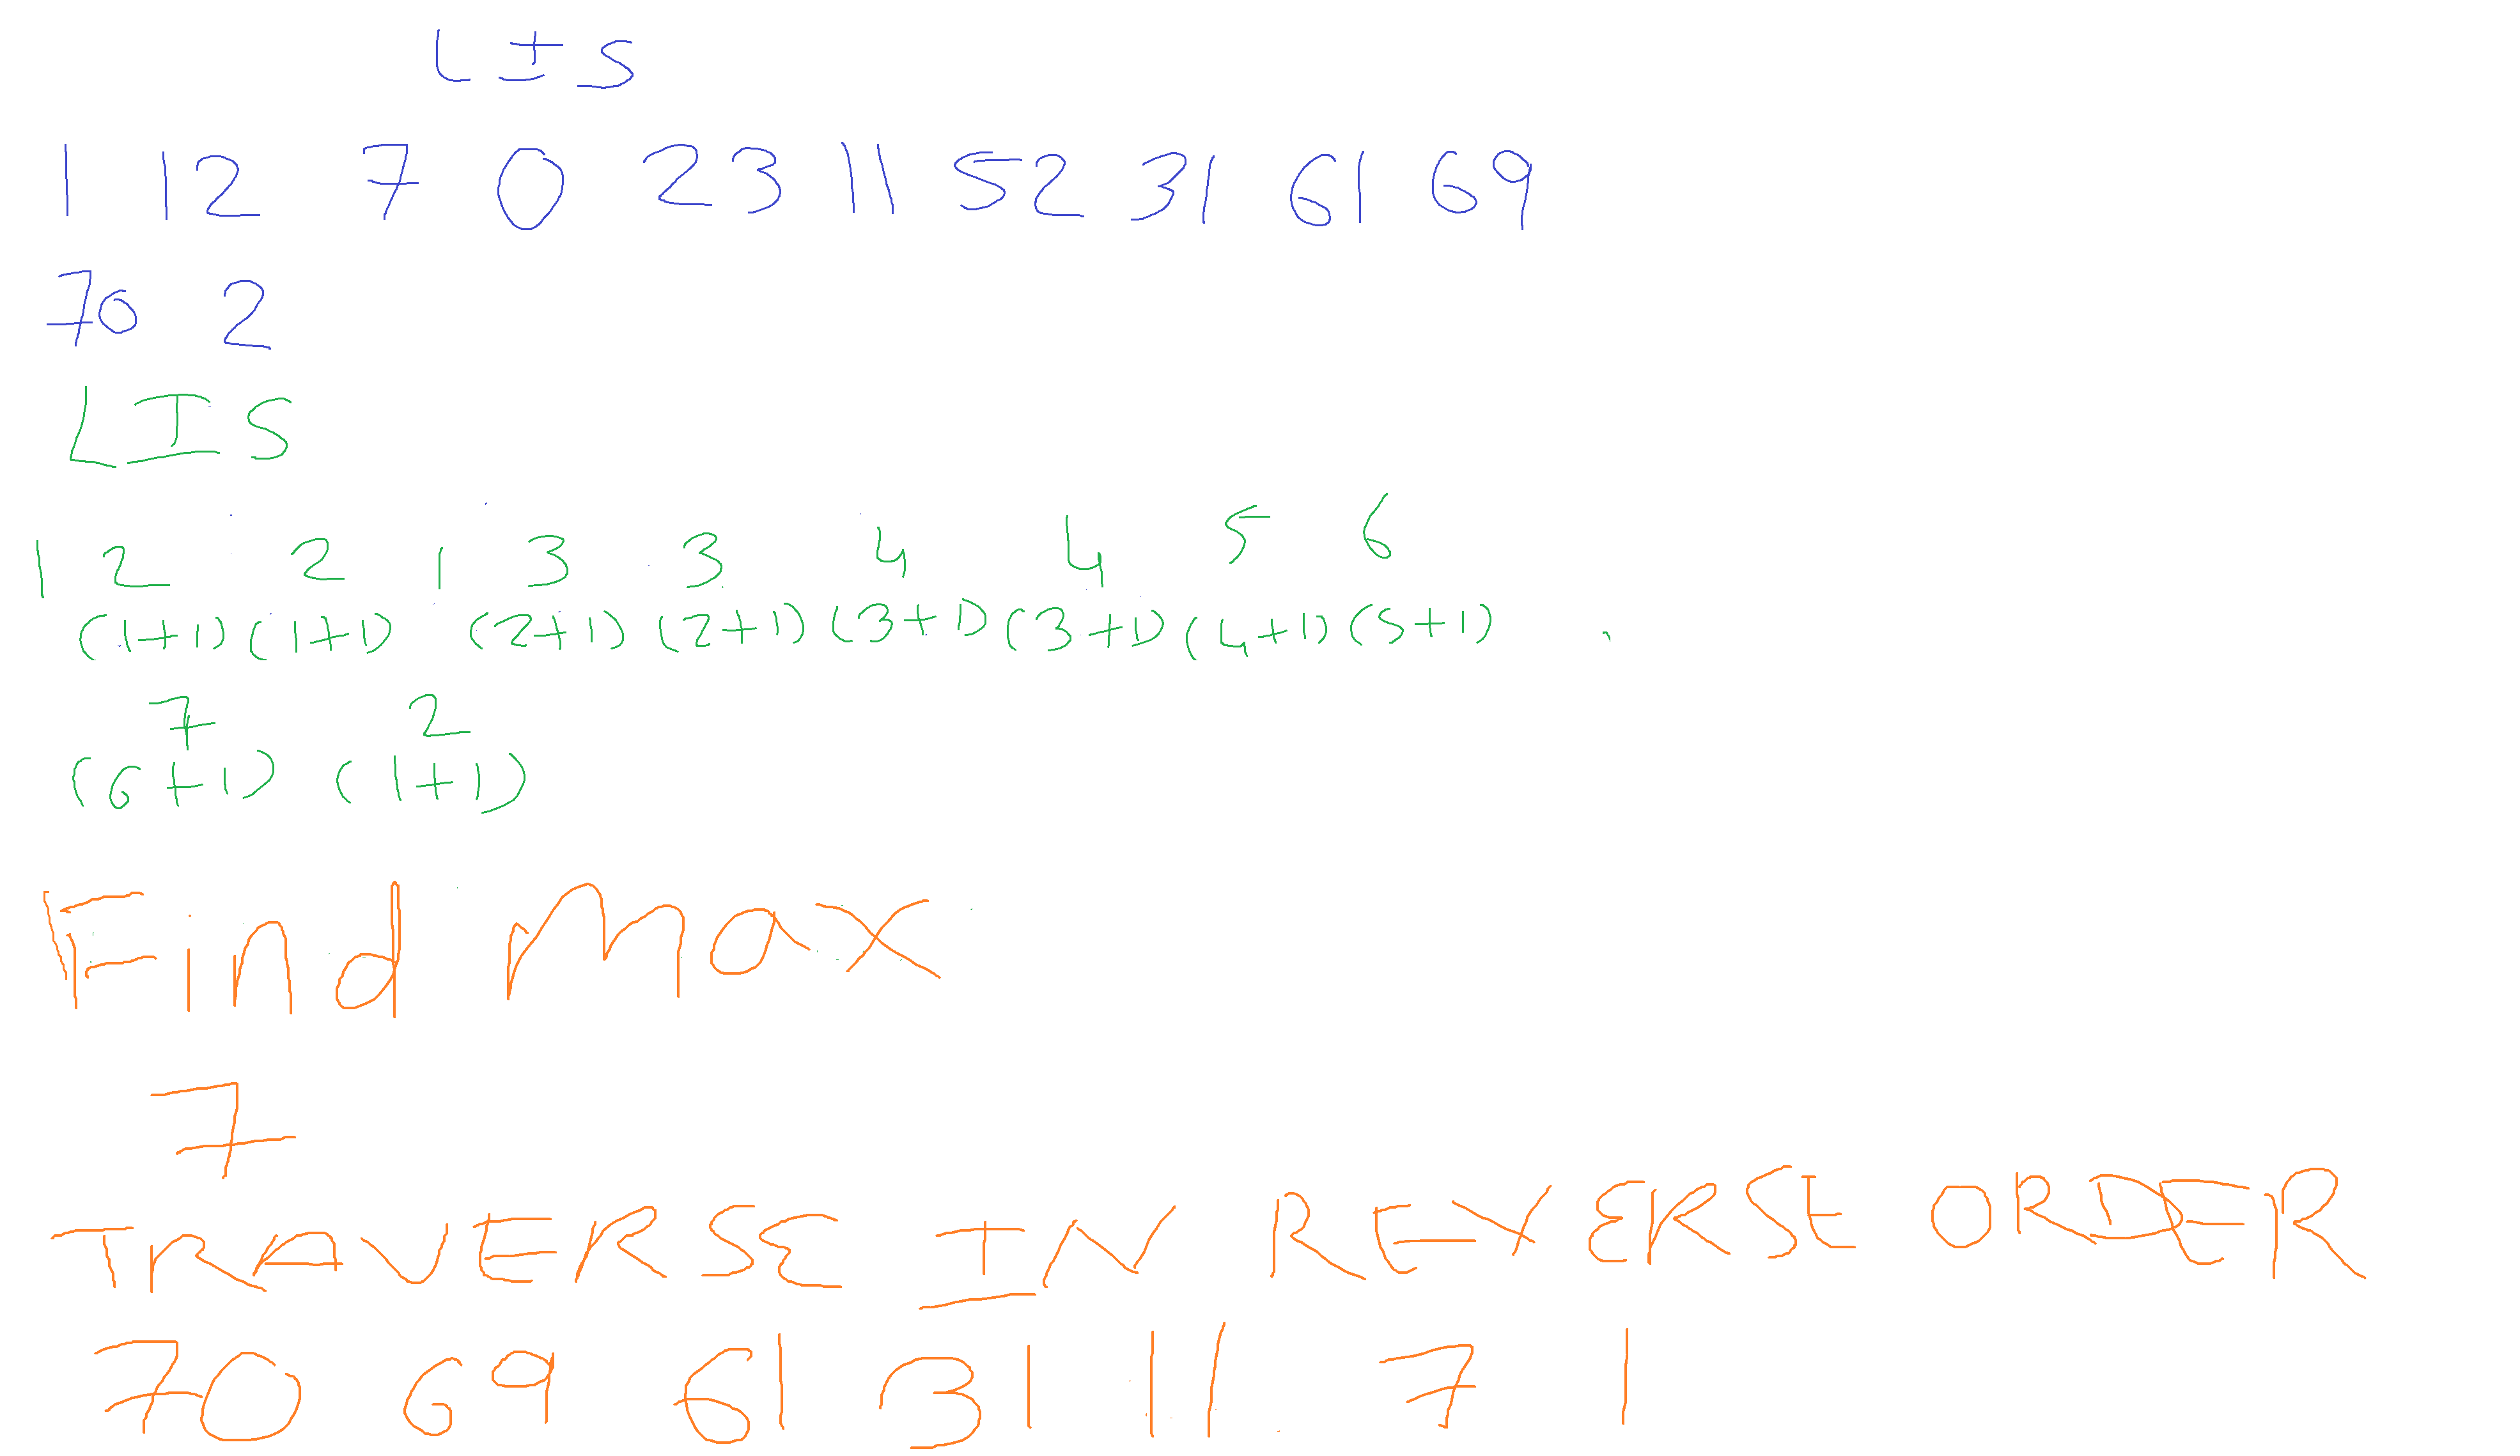 LIS
1 12 7 0 23 11 52 31 61 69
70 2
LIS
1 2 2 1 3 3 4 4 5 6
(1+1) (1+1) (2+1) (2+1) (3+1) (3+1) (4+1) (5+1)
7 2
(6+1) (1+1)
Find Max
7
TRAVERSE IN REVERSE ORDER
70 69 61 31 11 7 1